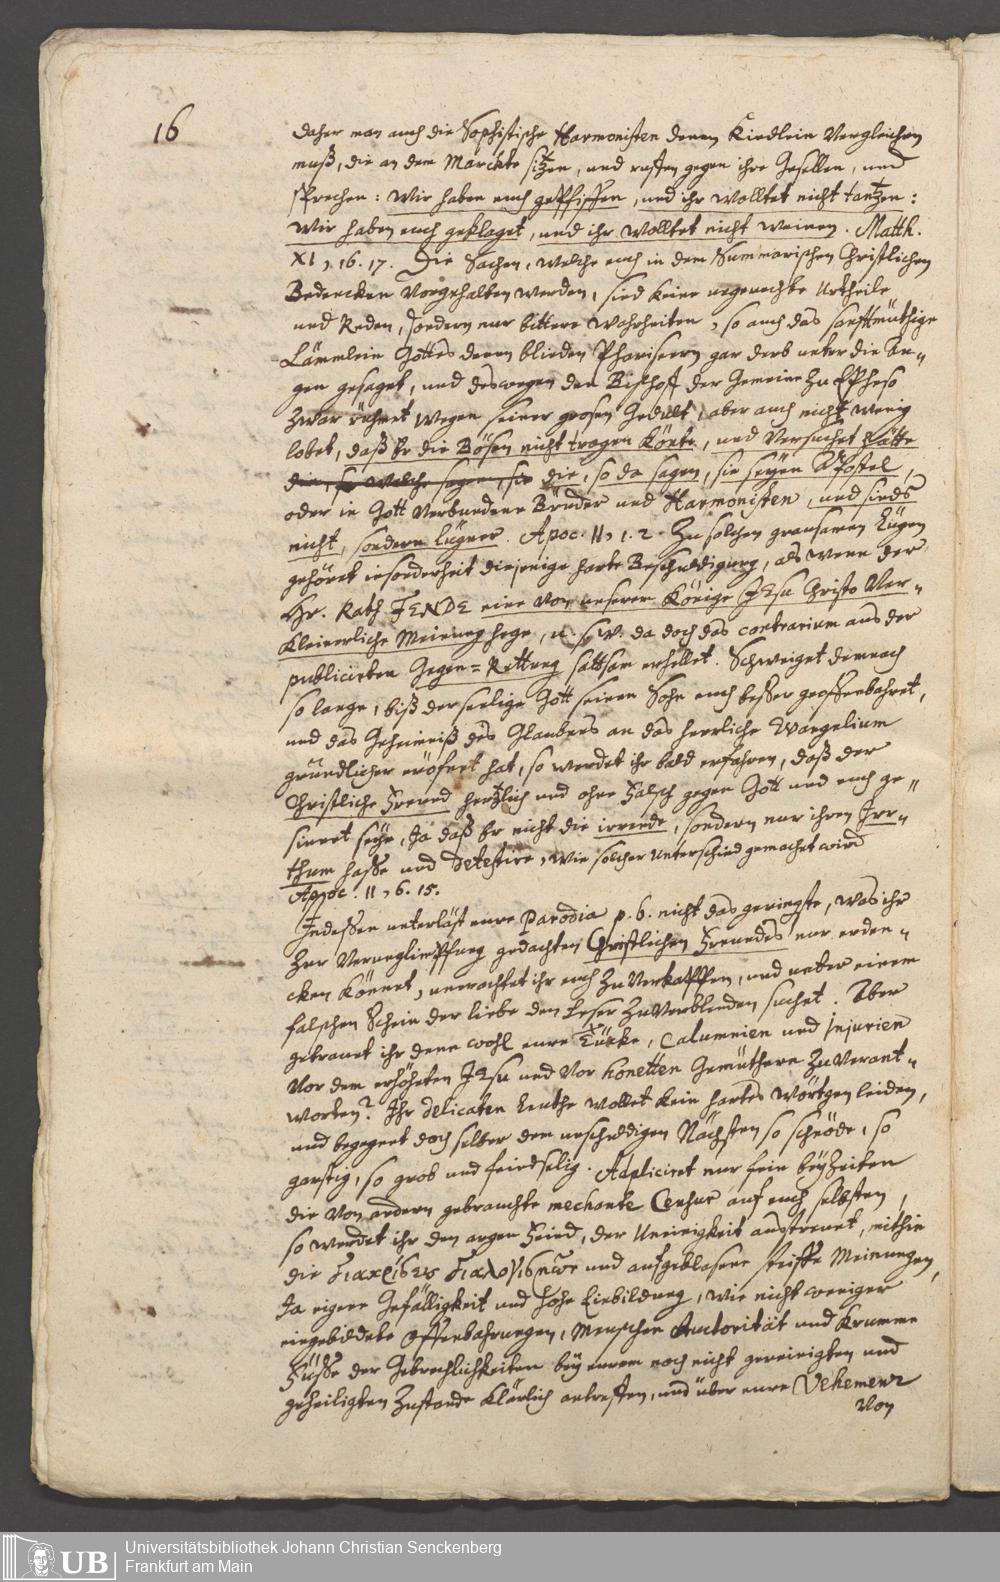 16
daher man auch die Sophistische Harmonisten denen Kindlein vergleichen
muß, die an dem Marckte sitzen, und ruffen gegen ihre Gesellen, und
sprechen: Wir haben euch gepfiffen, und ihr wolltet nicht tantzen:
Wir haben euch geklaget, und ihr wolltet nicht weinen. Matth.
XI, 16. 17. Die Sachen, welche euch in dem Summarischen Christlichen
Bedencken vorgehalten werden, sind keine ungerechte Urtheile
und Reden, sondern nur bittere Wahrheiten, so auch das sanfftmüthige
Lämmlein Gottes denen blinden Phariseern gar derb unter die Au„
gen gesaget, und deswegen den Bischoff der Gemeine zu Epheso
zwar rühmet wegen seiner grosen Gedult, aber auch nicht wenig
lobet, daß Er die Bösen nicht tragen könte, und versuchet hätte
die, so welche sagen, sie die, so da sagen, sie seyen Apostel,
oder in Gott verbundene Brüder und Harmonisten, und sinds
nicht, sondern Lügner. Apoc. II, 1. 2. Zu solchen grausamen Lügen
gehöret insonderheit diejenige harte Beschuldigung, als wenn der
Hr. Rath FENDE eine von unserm Könige JEsu Christo Ver„
kleinerliche Meinung hege, u. s. w. da doch das contrarium aus der
publicirten Gegen-Rettung sattsam erhellet. Schweiget demnach
so lange, biß der seelige Gott seinen Sohn euch beßer geoffenbahret,
und das Geheimniß des Glaubens an das herrliche Evangelium
gründlicher eröfnet hat, so werdet ihr bald erfahren, daß der
Christliche Freund hertzlich und ohne Falsch gegen Gott und euch ge„
sinnet seye, Ja daß Er nicht die irrende, sondern nur ihren Irr„
thum haße und detestire, wie solcher Unterschied gemachet wird
Apoc. II, 6. 15.
Indeßen unterläst eure Parodia p. 6. nicht das geringste, was ihr
zur Verunglimpfung gedachten Christlichen Freundes nur erden„
cken könnet, unerachtet ihr euch zu verkappen, und unter einem
falschen Schein der Liebe den Leser zu verblenden suchet. Aber
getrauet ihr denn wohl eure Tücke, Calumnien und Injurien
vor dem erhöheten JEsu und vor honetten Gemüthern zu verant„
worten? Ihr delicaten Leuthe wollet kein hartes Wörtgen leiden,
und begegnet doch selber dem unschuldigen Nächsten so schnöde, so
garstig, so grob und feindselig. Adpliciret nur fein beyzeiten
die von andern gebrauchte mechante Censur auf euch selbsten,
so werdet ihr den argen Feind, der Uneinigkeit ausstreuet, mithin
die und aufgeblasene steiffe Meinungen,
Ja eigene Gefälligkeit und hohe Einbildung, wie nicht weniger
eingebildete Offenbahrungen, Menschen Auctorität und krumme
Füße der Gebrechlichkeiten bey eurem noch nicht gereinigten und
geheiligten Zustande klärlich antreffen, und über eure Vehemenz
von
UB
Universitätsbibliothek Johann Christian Senckenberg
Frankfurt am Main